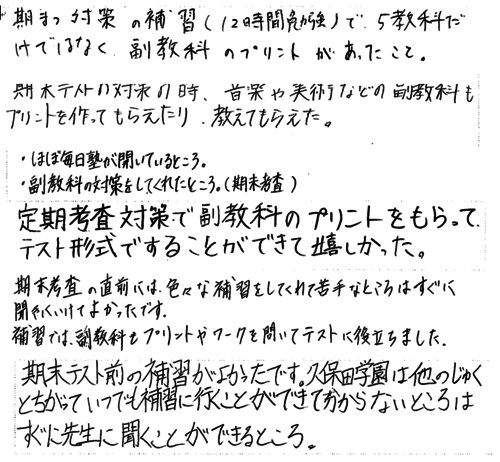 期末対策の補習(12時間勉強)で、5教科だ
けではなく、副教科のプリントがあったこと。
期末テストの対策の時、音楽や美術などの副教科も
プリントを作ってもらえたり、教えてもらえた。
・ほぼ毎日塾が開いているところ。
・副教科の対策をしてくれたところ。(期末考査)
定期考査対策で副教科のプリントをもらって、
テスト形式ですることができて嬉しかった。
期末考査の直前には、色々な補習をしてくれて苦手なところはすぐに
聞きにいけてよかったです。
補習では、副教科もプリントやワークを聞いてテストに役立ちました。
期末テスト前の補習がよかったです。久保田学園は他のじゅく
とちがっていつでも補習に行くことができて分からないところは
すぐに先生に聞くことができるところ。